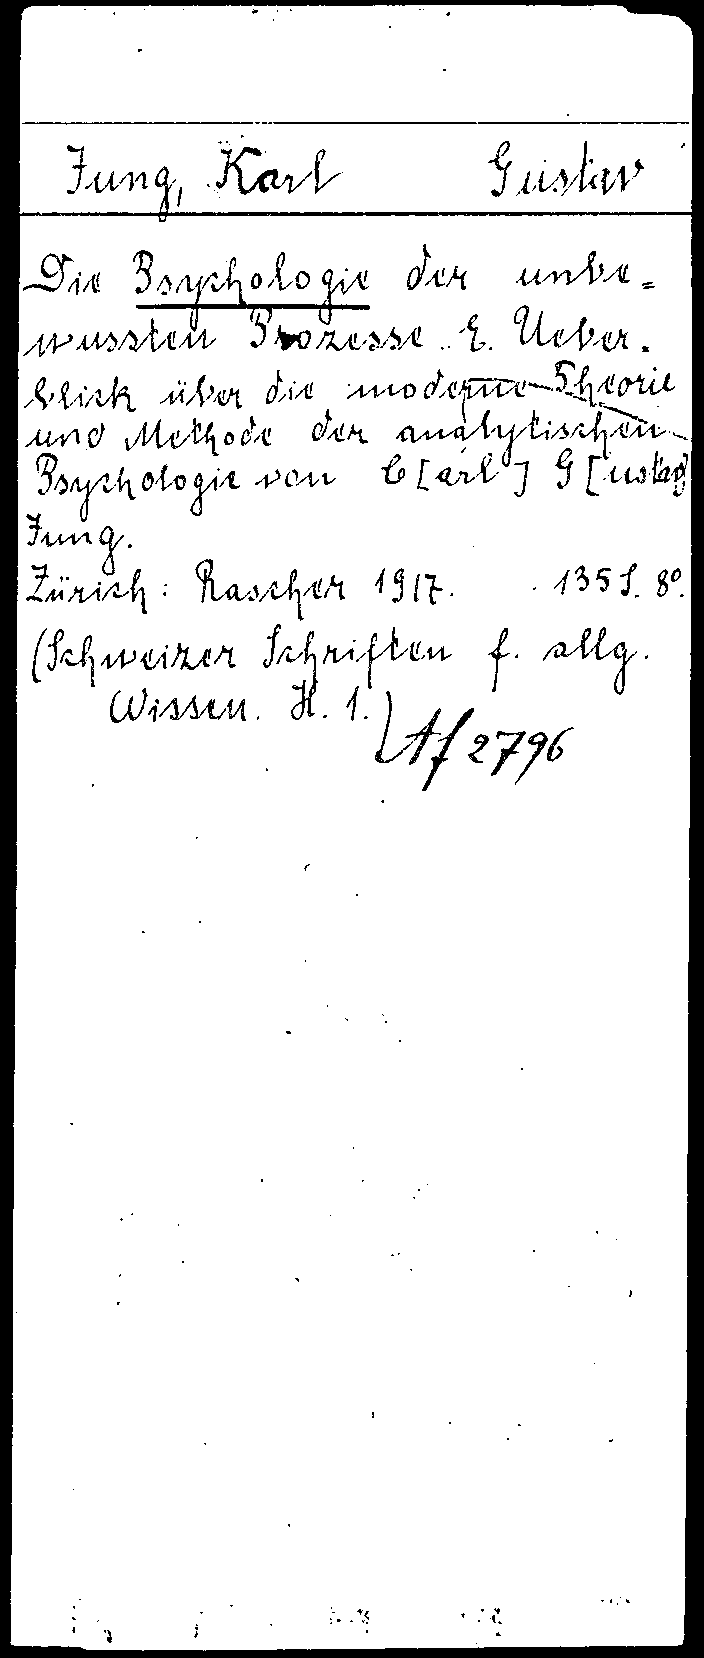 Jung, Karl Gustav
Die Psychologie der unbe=
wussten Prozesse. E. Ueber-
blick über die moderne Theorie
und Methode der analytischen
Psychologie von C[arl] G[ustav]
Jung.
Zürich: Rascher 1917. 135 S. 8°.
(Schweizer Schriften f. allg.
Wissen. H. 1.)
Af 2796